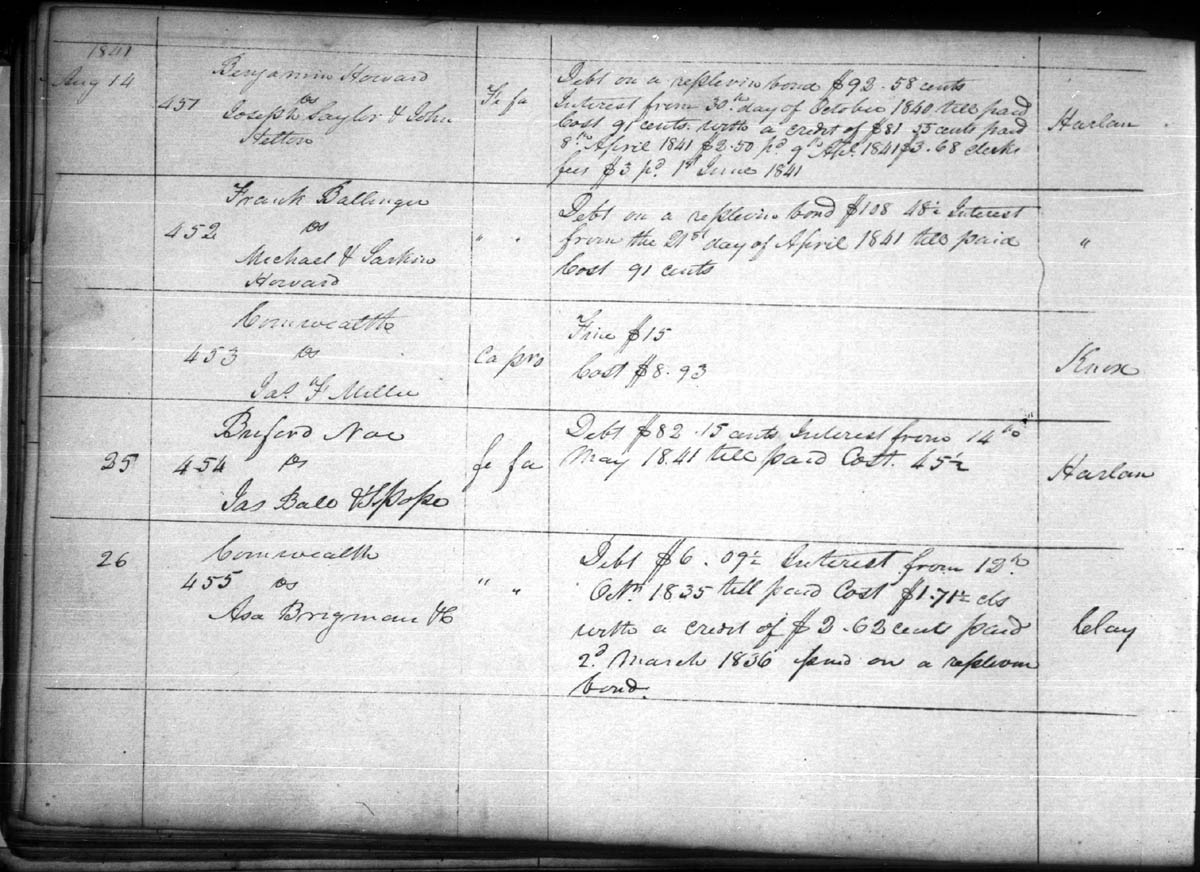 1841
Aug 14
451
Benjamin Howard
vs
Joseph Saylor & John
Helton
Fi fa
Debt on a replevin bond $92.58 cents
Interest from 30th day of October 1840 till paid
Cost 91 cents. with a credit of $81 55 cents paid
8th April 1841 $2.50 pd 9th Apl. 1841 $3.68 clerks
fees $3 pd 1st June 1841
Harlan
452
Frank Ballinger
vs
Michael & Larkin
Howard
" "
Debt on a replevin bond $108 48½ Interest
from the 21st day of April 1841 till paid
Cost 91 cents
"
453
Comwealth
vs
Jas. F Miller
Ca pro
Fine $15
Cost $8.93
Knox
25
454
Buford Noe
vs
Jas Ball & Pope
fi fa
Debt $82.15 cents Interest from 14th
May 1841 till paid Cost. 45½
Harlan
26
455
Comwealth
vs
Asa Brigman &C
" "
Debt $6.09½ Interest from 12th
Octr. 1835 till paid Cost $1.71½ cts
with a credit of $2.62 cents paid
2d March 1836 on a replevin
bond.
Clay